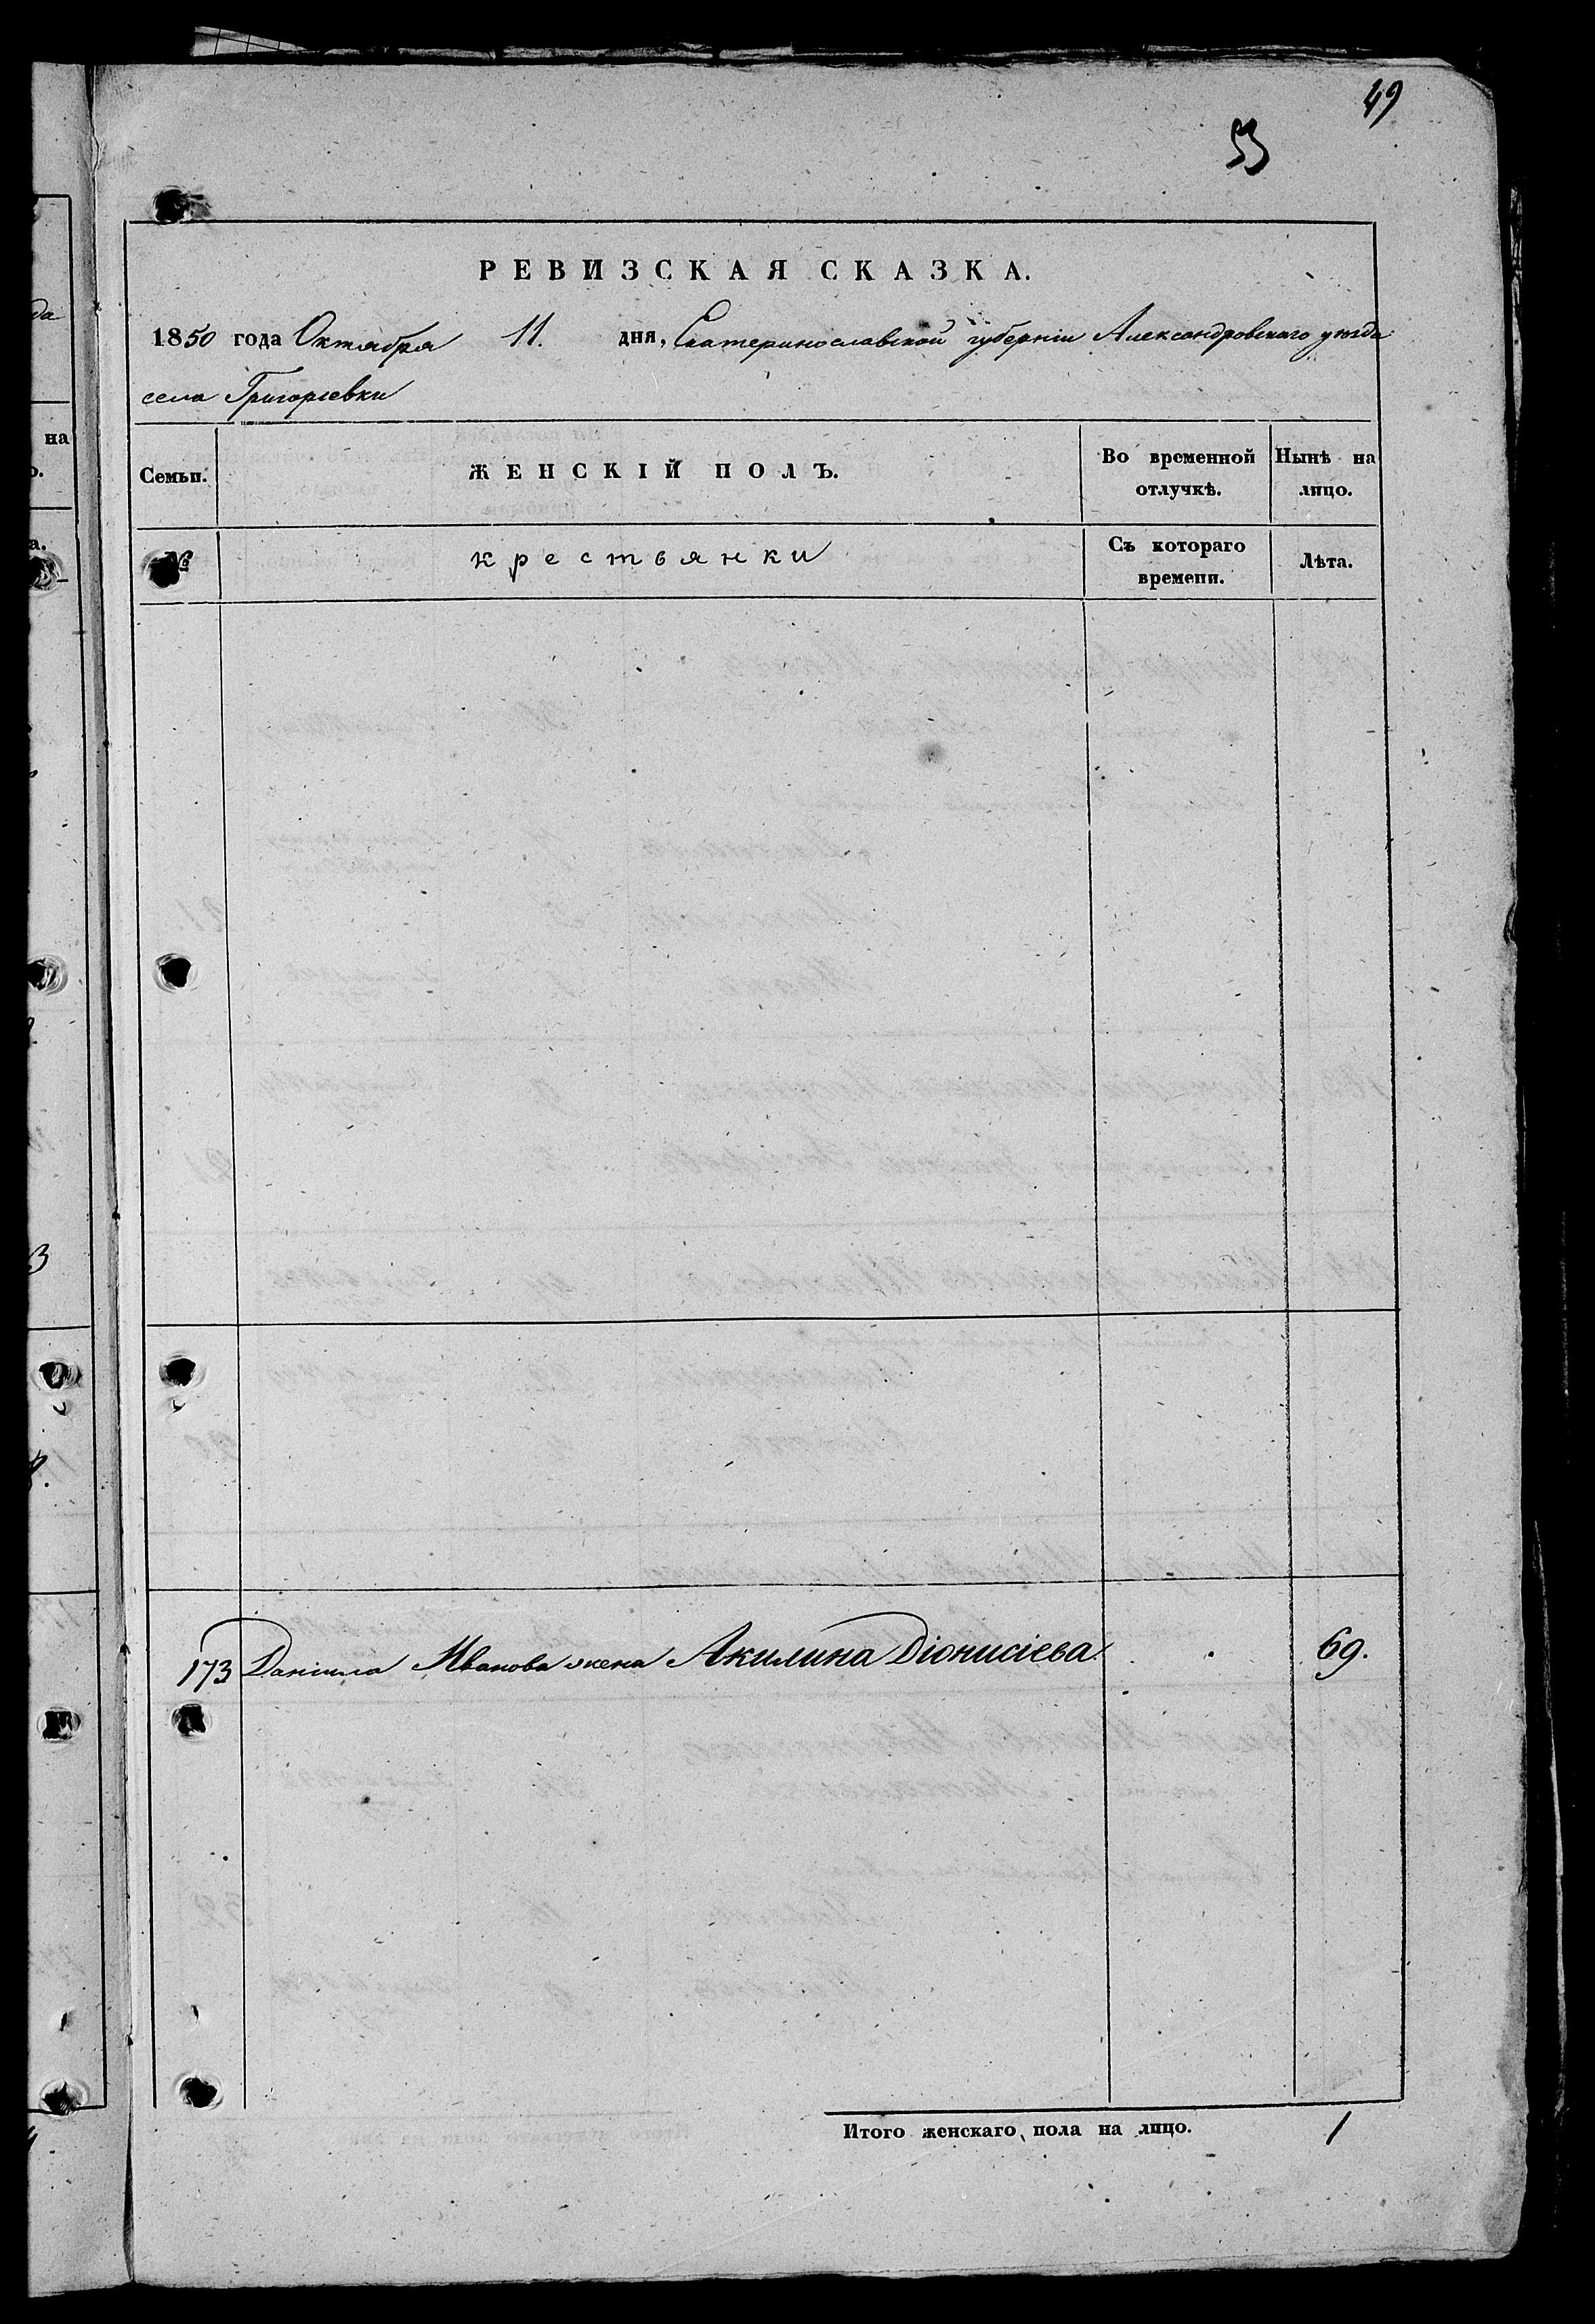 49
53
РЕВИЗСКАЯ СКАЗКА.
1850 года Октября 11. дня, Екатеринославской губерніи Александровскаго уѣзда
села Григорьевки
Семьи. ЖЕНСКІЙ ПОЛЪ. Во временной отлучкѣ. Нынѣ на лицо.
№ крестьянки Съ котораго времени. Лѣта.
173 Даніила Иванова жена Акилина Діонисіева. 69.
Итого женскаго пола на лицо. 1